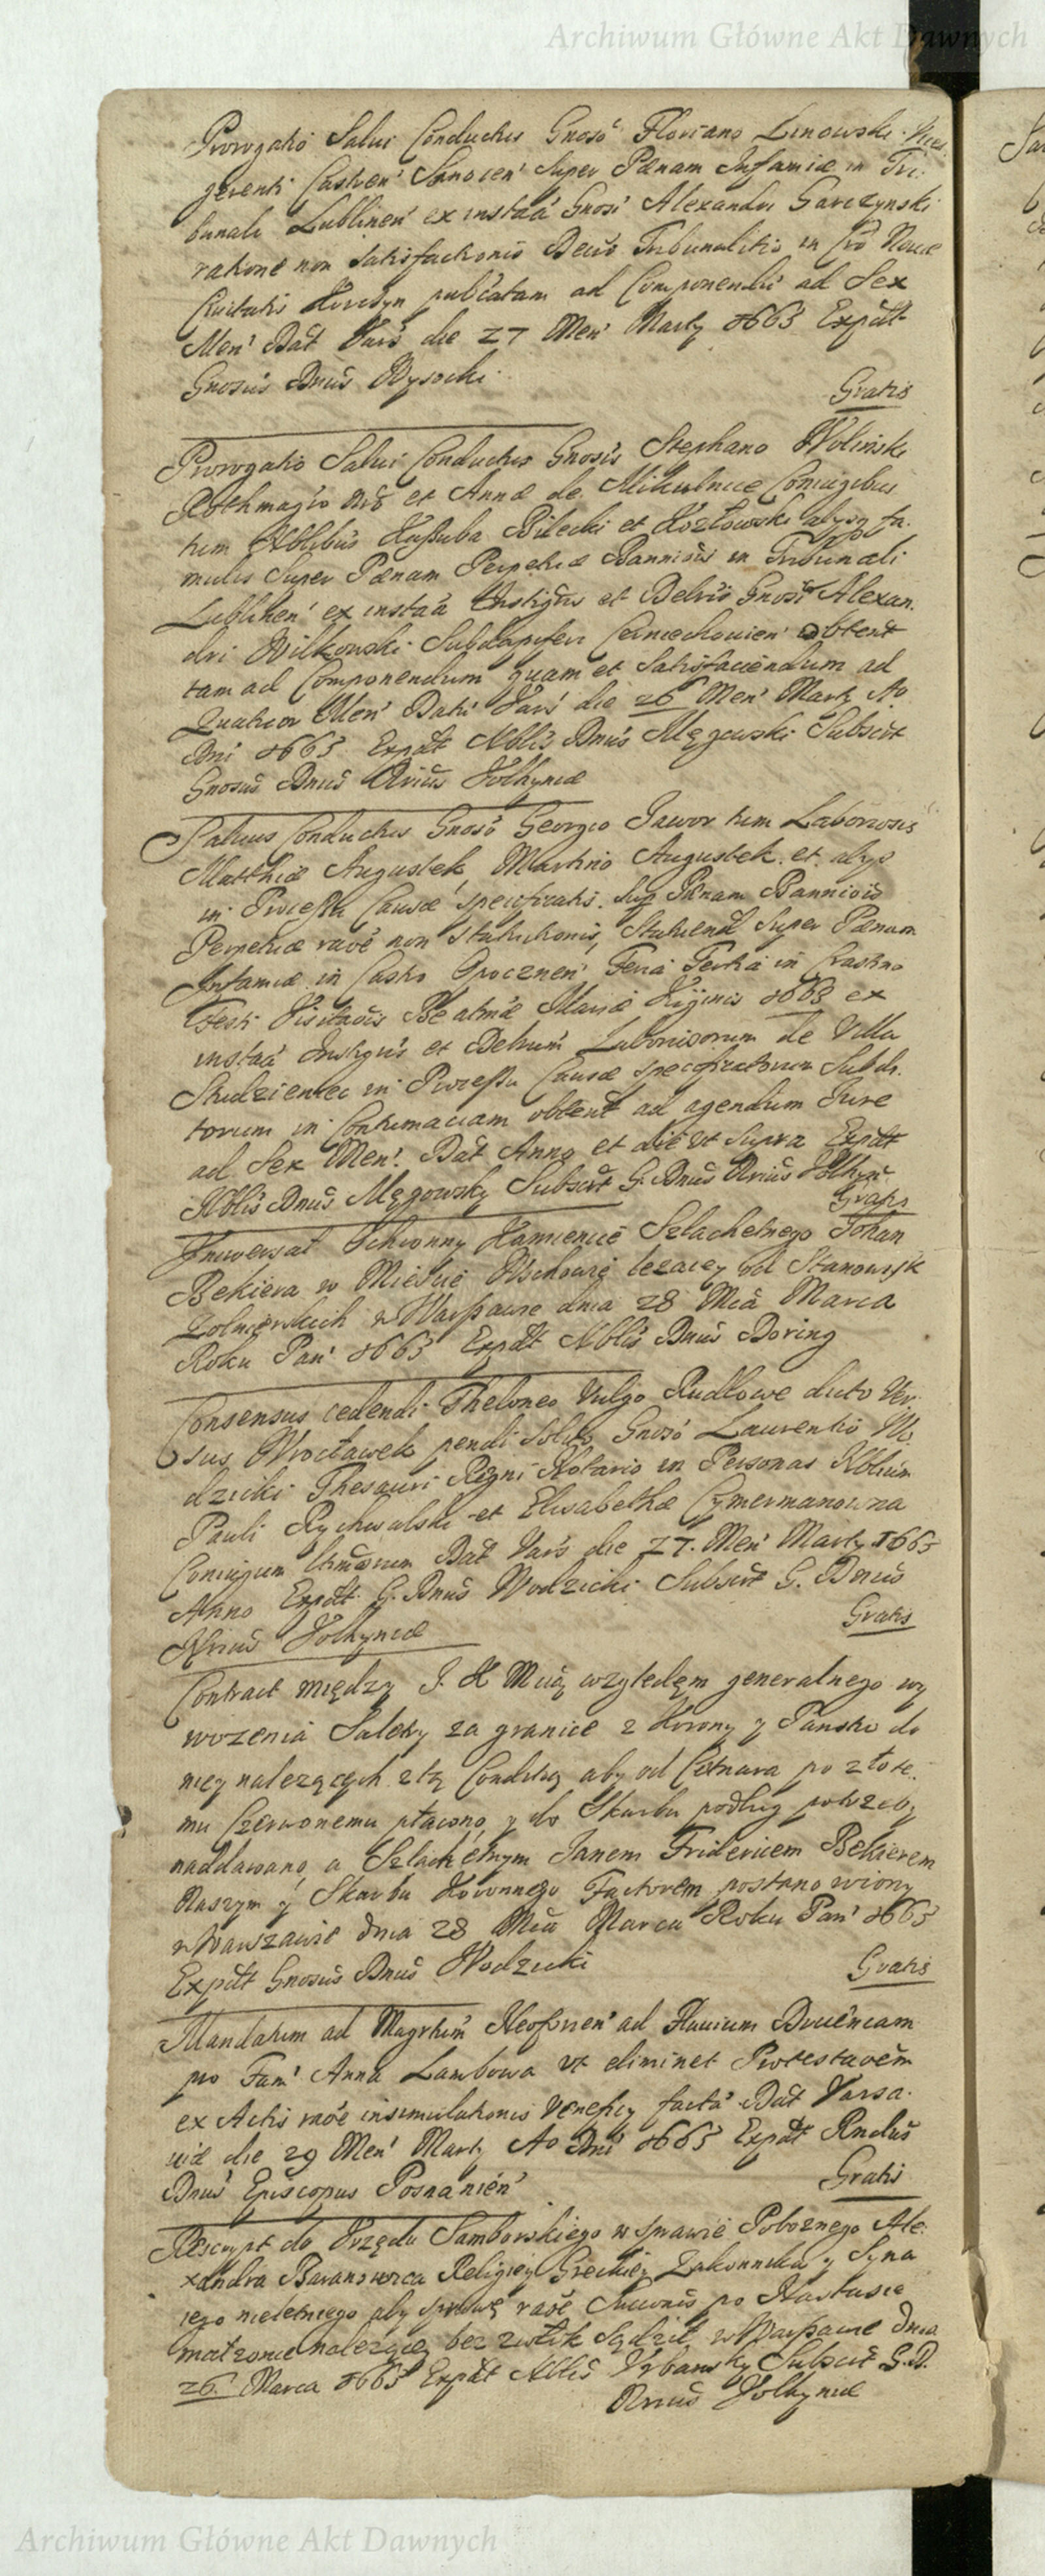 Archiwum Główne Akt Dawnych
Prorogatio Salui Conductus Gnoso Floriano Linowski Vices
gerenti Castren' Sanocen' super Pænam Infamiæ in Tri.
bunali Lublinen' ex instaa Gnosi Alexandri Garczynski
ratione non satisfactionis Decis Tribunalitio in Cro Nouæ
Ciuitatis Korczyn publicatam ad Componendū ad Sex
Men' Dat Vars die 27 Men' Marty 1663 Expdt
Gnosus Dnus Wysocki
Gratis
Prorogatio Salui Conductus Gnosis Stephano Woliński
Rothmagro et Annæ de Mikulnice Coniugibus
tum Nblibus Bilecki et Kozłowski alysq fa.
mulis super Pænam Perpetuæ Bannitiois in Tribunali
Lublinen' ex instaa Instigris et Delris Gnosi Alexan.
dri Wilkowski Subdapiferi Czerniechouien' obtent
tam ad Componendum quam et satisfaciendum ad
Quatuor Men' Dati Vars die 26 Men' Marty Ao
Dni 1663 Expdt Nblis Dnus Męgewski Subscrt
Gnosus Dnus Orius Volhyniæ
Saluus Conductus Gnoso Georgio Jawor tum Laboriosis
Matthiæ Augustek, Martino Augustek et alys
in Processu Causæ specificatis sup Pænam Bannitiois
Perpetuæ raoe non statutionis, Statuend super Pænam
Infamiæ in Castro Opocznen' Feria Tertia in Crastino
Festi Visitaois Beatmæ Mariæ Virginis 1663 ex
instaa Instigris et Delrum Laboriosorum de Villa
Studzieniec in Processu Causæ specificatorum Subdi.
torum in Contumaciam obtent ad agendum Jure
ad Sex Men'. Dat Anno et die vt supra Expdt
Nblis Dnus Męgowsky Subscrt G. Dnus Orius Volhyn
Gratis
Vniwersał Ochronny Kamienice Szlachetnego Johan
Bekiera w Miescie Wschowie lezacey od Stanowisk
Zolnierskich w Warszawie dnia 28 Mca Marca
Roku Pan' 1663 Expdt Nblis Dnus Doring
Consensus cedendi Theloneo vulgo Rudłowe dicto Ver.
sus Wrocławek pendi solito Gnoso Laurentio Wo
dzicki Thesauri Regni Notario in Personas Nblium
Pauli Rychwalski et Elisabethæ Cymermanowna
Coniugum Dat Vars die 27. Men' Marty 1663
Anno Expdt G. Dnus Wodzicki Subscrt G. Dnus
Gratis
Orius Volhyniæ
Contract między J. K Mcią względem generalnego wy
wozenia Saletry za granice z Korony y Panstw do
niey nalezących z tą Conditią aby od Cetnara po złote.
mu Czerwonemu płacono, y do Skarbu podług potrzeby
naddawano, a Szlachetnym Janem Fridericem Bekierem
Naszym y Skarbu Koronnego Factorem postanowiony
w Warszawie dnia 28 Mca Marca Roku Pan' 1663
Expdt Gnosus Dnus Wodzicki
Gratis
Mandatum ad Magrtum ad Fluuium Druencam
pro Fam' Anna Lambowa vt eliminet Protestaoem
ex Actis raoe insimulationis Veneficy facta Dat Varsa.
uiæ die 29 Men' Marty Ao Dni 1663 Expdt Rndus
Dnus Episcopus Posnanien'
Gratis
Rescrypt do Vrzędu Samborskiego w sprawie Poboznego Ale.
xandra Baranowica Religiey Greckiey Zakonnika y Syna
iego nieletniego aby sprawę raoe po Nastasie
małzonce nalezącey bez zwłok sądził, w Warszawie dnia
26. Marca 1663 Expdt Nblis Vrbansky Subscrt G.D.
Orius Volhyniæ
Archiwum Główne Akt Dawnych